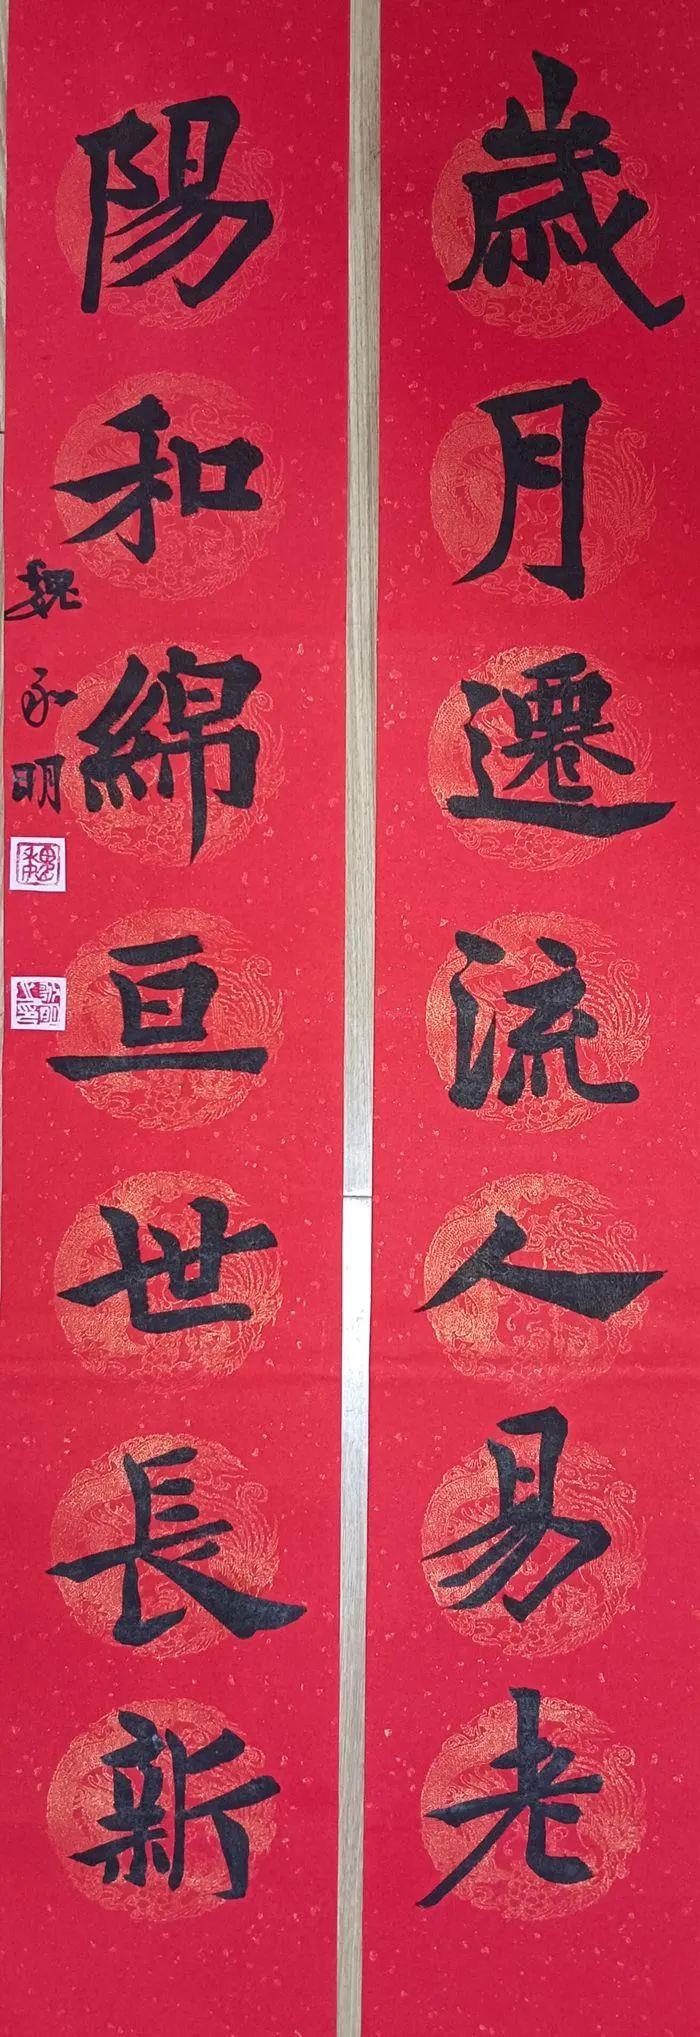 歲月遷流人易老
陽和綿亘世長新
魏永明
魏